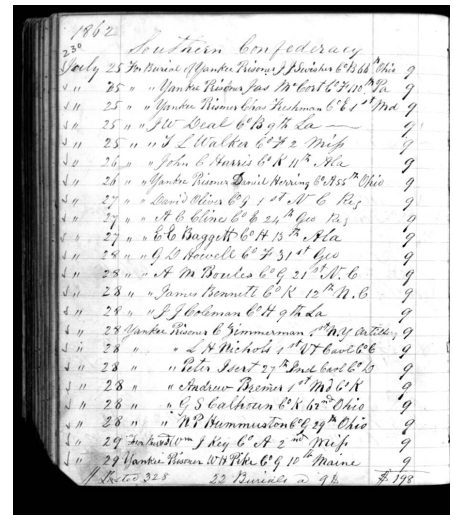 1862
230
Southern Confederacy
July 25 For Burial of Yankee Prisoner J J Swisher Co B 66th Ohio 9
" 25 " " Yankee Prisoner Jas McCort Co F 110th Pa 9
" 25 " " Yankee Prisoner Chas Freshman Co E 1st Md 9
" 25 " " J W Deal Co B 9th La 9
" 25 " " T L Walker Co F 2 Miss 9
" 26 " " John C Harris Co K 11th Ala 9
" 26 " " Yankee Prisoner Daniel Herring Co A 55th Ohio 9
" 27 " " David Oliver Co G 1st N C Reg 9
" 27 " " A C Clines Co E 24th Geo Reg 9
" 27 " " E E Baggett Co H 13th Ala 9
" 28 " " G D Howell Co F 31st Geo 9
" 28 " " A M Bowles Co G 21st N.C 9
" 28 " " James Bennett Co K 12th N.C 9
" 28 " " J J Coleman Co H 9th La 9
" 28 Yankee Prisoner C Zimmerman 1st N.Y Artillery 9
" 28 " " L H Nichols 1st Vt Cavl Co C 9
" 28 " " Peter Isert 27th Ind Co D 9
" 28 " " Andrew Bremer 1st Md Co K 9
" 28 " " G S Calhoun Co K 62nd Ohio 9
" 28 " " N P Hummiston Co G 29th Ohio 9
" 29 Wm J Key Co A 2nd Miss 9
" 29 Yankee Prisoner W H Pike Co G 10th Maine 9
Posted 328 22 Burials a 9$ $198